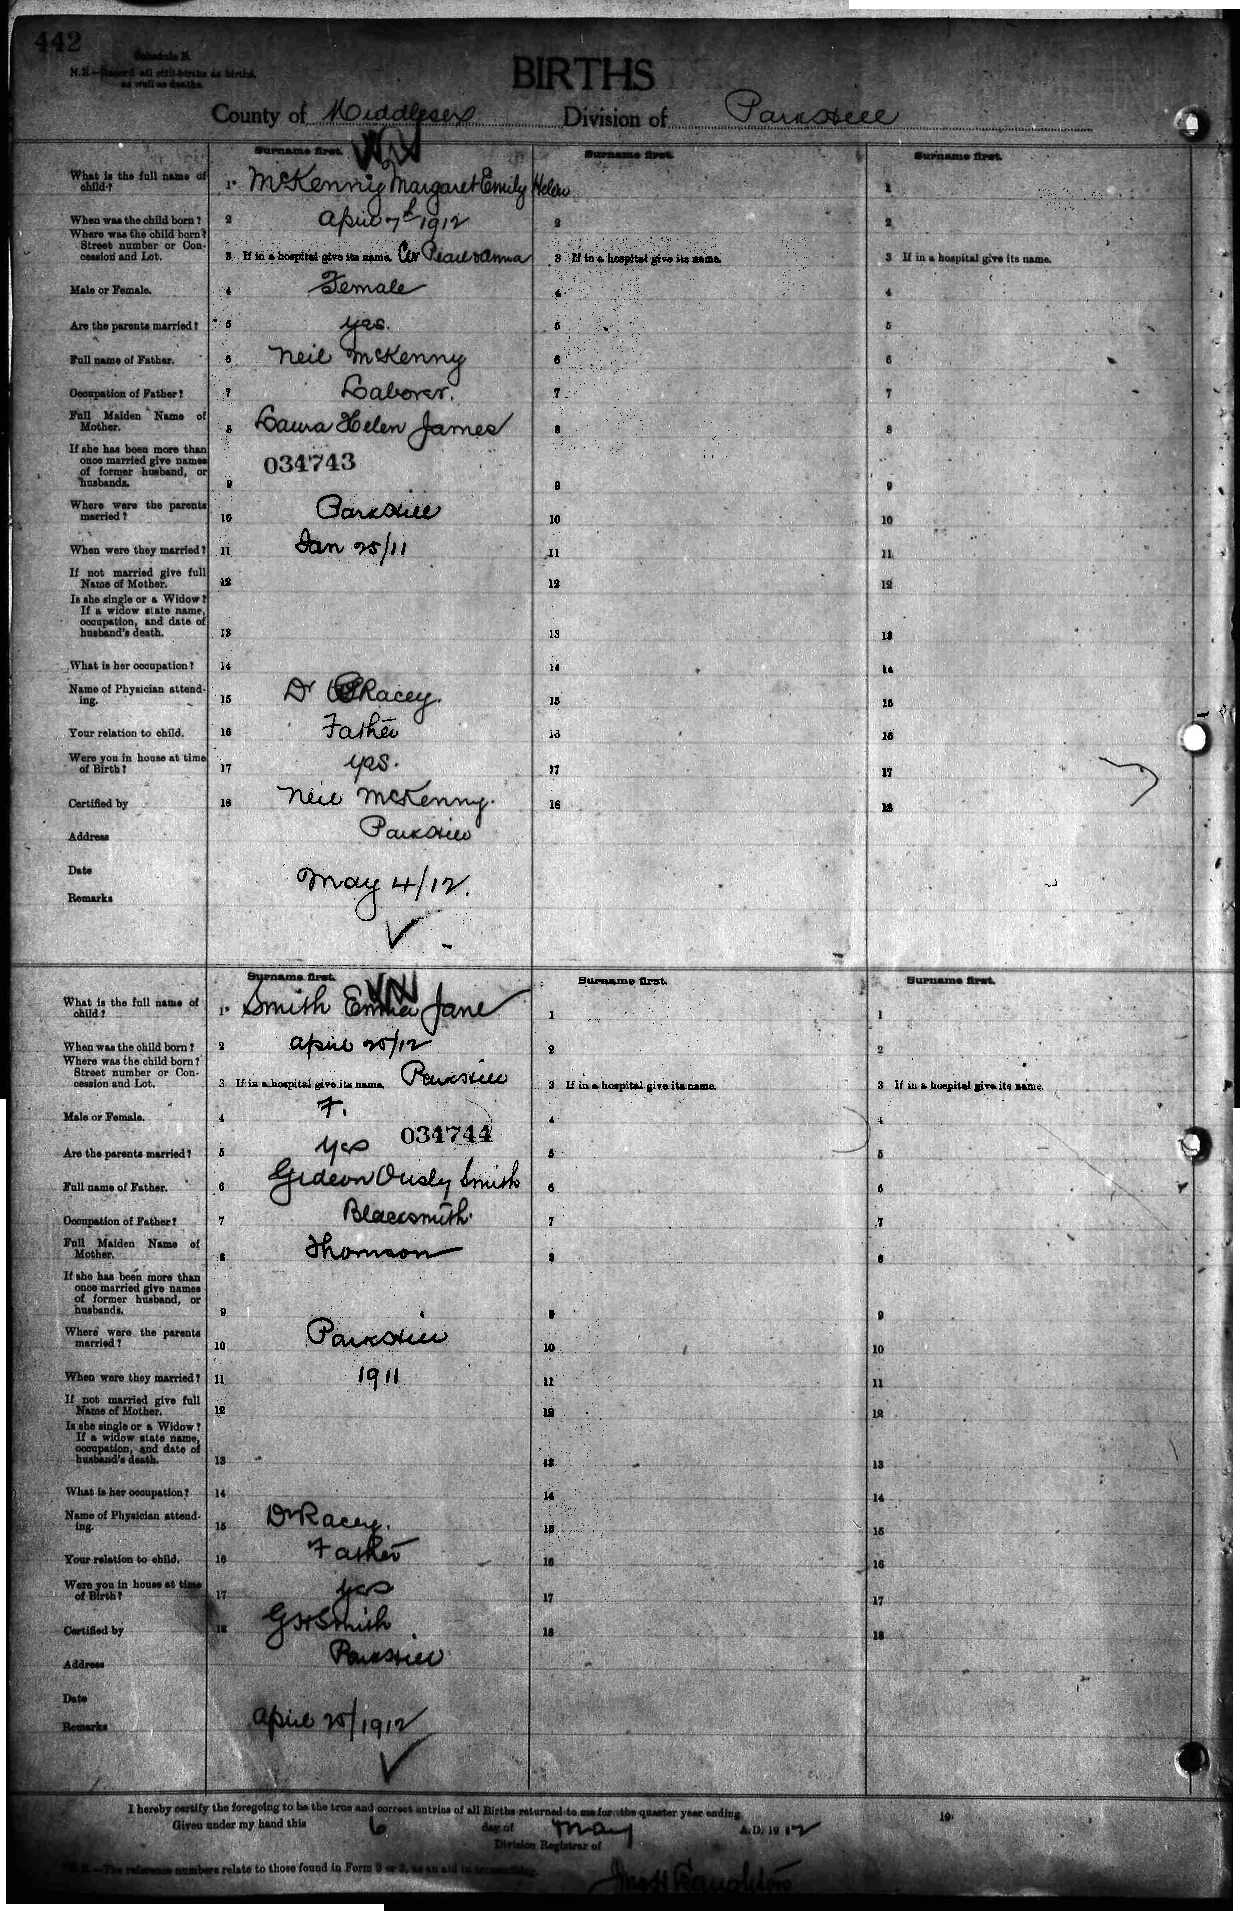 442
Schedule B.
N.B.—Record all still-births as births,
as well as deaths.
BIRTHS
County of Middlesex Division of Parkhill
Surname first. Surname first. Surname first.
What is the full name of child? 1 McKenny Margaret Emily Helen 1
When was the child born? 2 April 7th 1912 2 2
Where was the child born?
Street number or Concession and Lot. 3 If in a hospital give its name. Cor Pearl & Anna 3 If in a hospital give its name. 3 If in a hospital give its name.
Male or Female. 4 Female 4 4
Are the parents married? 5 yes. 5 5
Full name of Father. 6 Neil McKenny 6 6
Occupation of Father? 7 Laborer. 7 7
Full Maiden Name of Mother. 8 Laura Helen James 8 8
If she has been more than
once married give names
of former husband, or
husbands. 9 9 9
034743
Where were the parents married? 10 Parkhill 10 10
When were they married? 11 Jan 25/11 11 11
If not married give full
Name of Mother. 12 12 12
Is she single or a Widow?
If a widow state name,
occupation, and date of
husband's death. 13 13 13
What is her occupation? 14 14 14
Name of Physician attending. 15 Dr Racey. 15 15
Your relation to child. 16 Father 16 16
Were you in house at time
of Birth? 17 yes. 17 17
Certified by 18 Neil McKenny. 18 18
Address Parkhill
Date May 4/12.
Remarks
Surname first. Surname first. Surname first.
What is the full name of child? 1 Smith Emma Jane 1 1
When was the child born? 2 April 25/12 2 2
Where was the child born?
Street number or Concession and Lot. 3 If in a hospital give its name. Parkhill 3 If in a hospital give its name. 3 If in a hospital give its name.
Male or Female. 4 F. 4 4
034744
Are the parents married? 5 yes 5 5
Full name of Father. 6 Gideon Ously Smith 6 6
Occupation of Father? 7 Blacksmith. 7 7
Full Maiden Name of Mother. 8 Thomson 8 8
If she has been more than
once married give names
of former husband, or
husbands. 9 9 9
Where were the parents married? 10 Parkhill 10 10
When were they married? 11 1911 11 11
If not married give full
Name of Mother. 12 12 12
Is she single or a Widow?
If a widow state name,
occupation, and date of
husband's death. 13 13 13
What is her occupation? 14 14 14
Name of Physician attending. 15 Dr Racey. 15 15
Your relation to child. 16 Father 16 16
Were you in house at time
of Birth? 17 yes 17 17
Certified by 18 Smith 18 18
Address Parkhill
Date April 25/1912
Remarks
I hereby certify the foregoing to be the true and correct entries of all Births returned to me for the quarter year ending 19
Given under my hand this 6 day of May A.D. 1912
Division Registrar of
N.B.—The reference numbers relate to those found in Form 2 or 3, as an aid in transcribing.